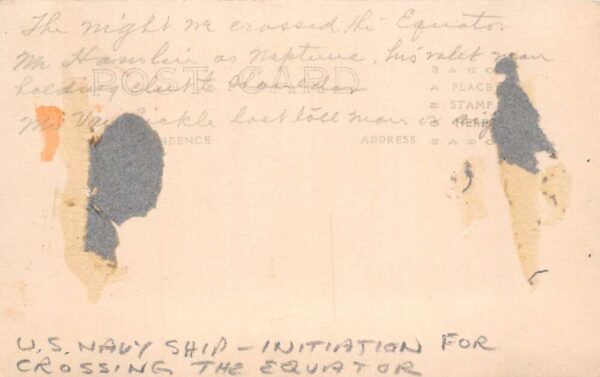 The night we crossed the Equator
Mr Hamlin as Neptune, his valet near
POST CARD
holding
PLACE
STAMP
HERE
Mr Van Sickle last tall man on
NDENCE
ADDRESS
U.S. NAVY SHIP - INITIATION FOR
CROSSING THE EQUATOR